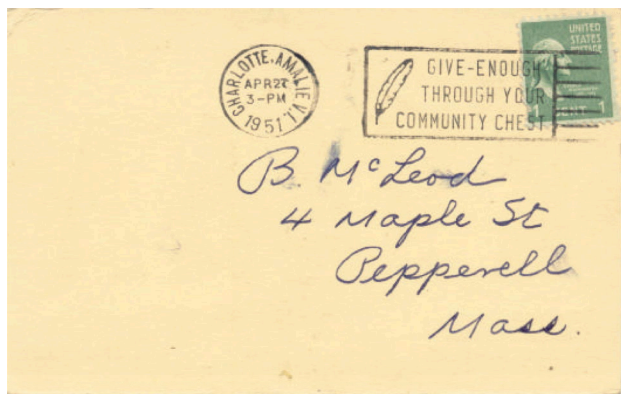 CHARLOTTE. AMALIE V.I.
APR 27
3-PM
1951
GIVE-ENOUGH
THROUGH YOUR
COMMUNITY CHEST
UNITED
STATES
POSTAGE
CENT 1
B. McLeod
4 Maple St
Pepperell
Mass.